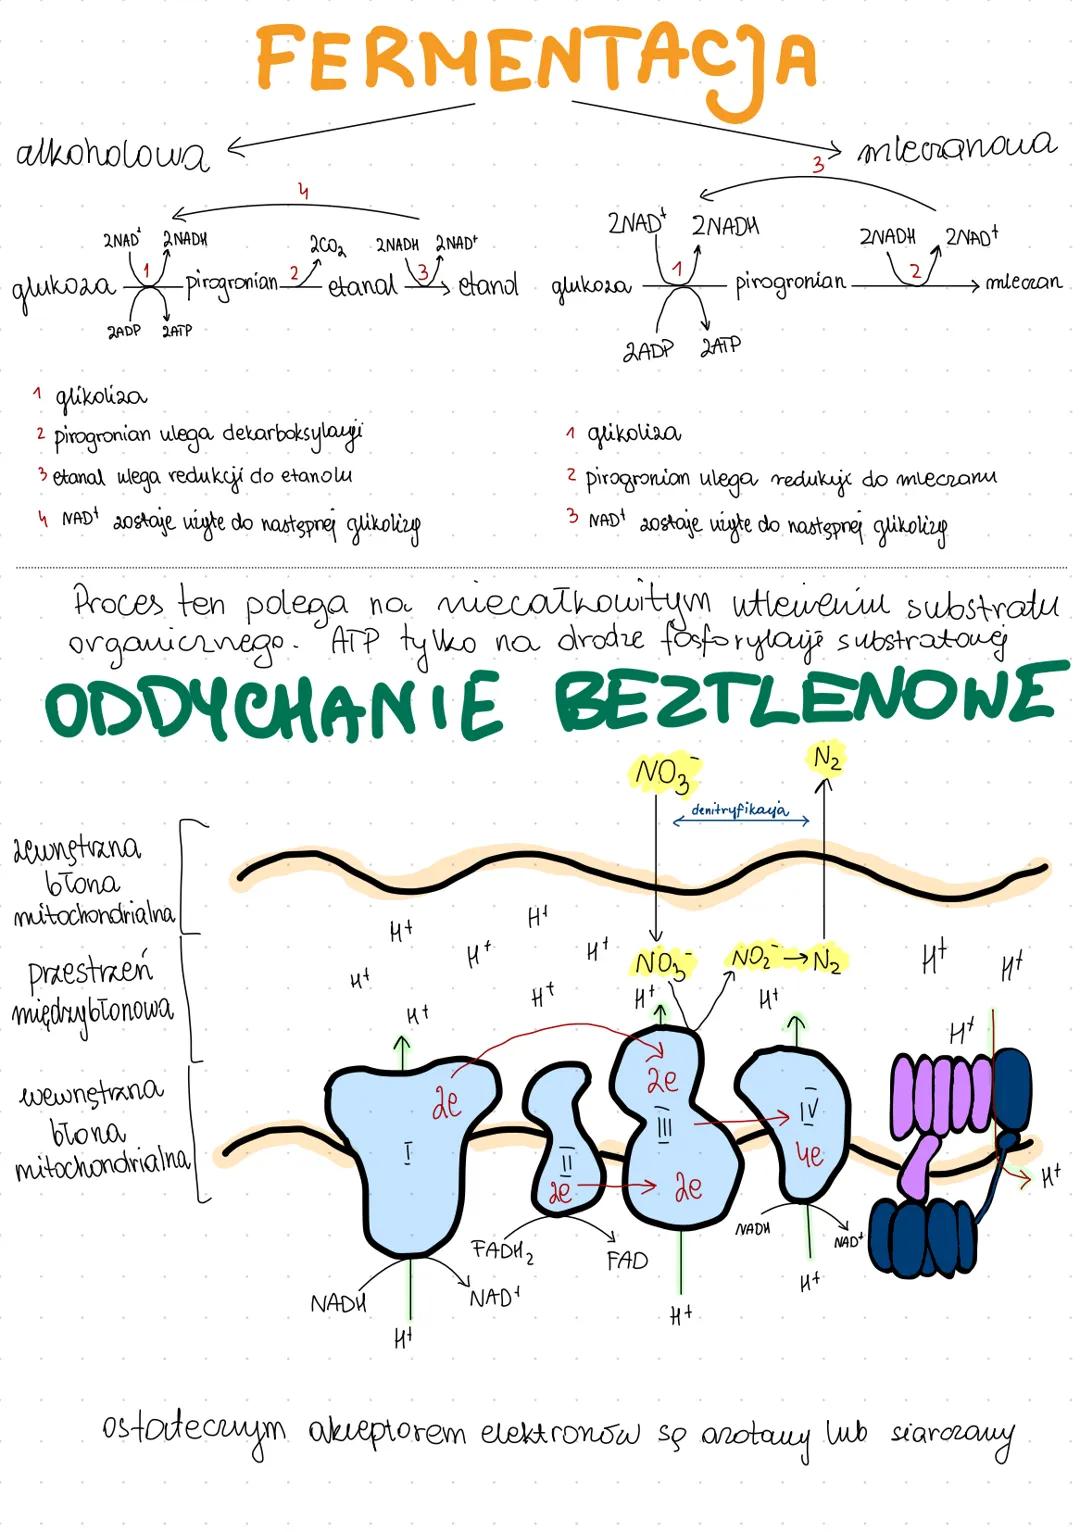 FERMENTACJA
alkoholowa
mleczanowa
4
2NAD⁺ 2NADH 2CO₂ 2NADH 2NAD⁺
glukoza 1 pirogronian 2 etanal 3 etanol
2ADP 2ATP
3
2NAD⁺ 2NADH 2NADH 2NAD⁺
glukoza 1 pirogronian 2 mleczan
2ADP 2ATP
1 glikoliza
2 pirogronian ulega dekarboksylacji
3 etanal ulega redukcji do etanolu
4 NAD⁺ zostaje użyte do następnej glikolizy
1 glikoliza
2 pirogronian ulega redukcji do mleczanu
3 NAD⁺ zostaje użyte do następnej glikolizy
Proces ten polega na niecałkowitym utlenieniu substratu
organicznego. ATP tylko na drodze fosforylacji substratowej
ODDYCHANIE BEZTLENOWE
NO₃⁻ N₂
denitryfikacja
zewnętrzna
błona
mitochondrialna
H⁺ H⁺ H⁺ H⁺ NO₃⁻ NO₂⁻ → N₂ H⁺ H⁺
przestrzeń
międzybłonowa
H⁺ H⁺ H⁺ H⁺ H⁺ H⁺
wewnętrzna
błona
mitochondrialna
2e 2e IV
I II III 4e
2e 2e H⁺
NADH NAD⁺
FADH₂ FAD
NADH NAD⁺ H⁺
H⁺ H⁺
ostatecznym akceptorem elektronów są azotany lub siarczany